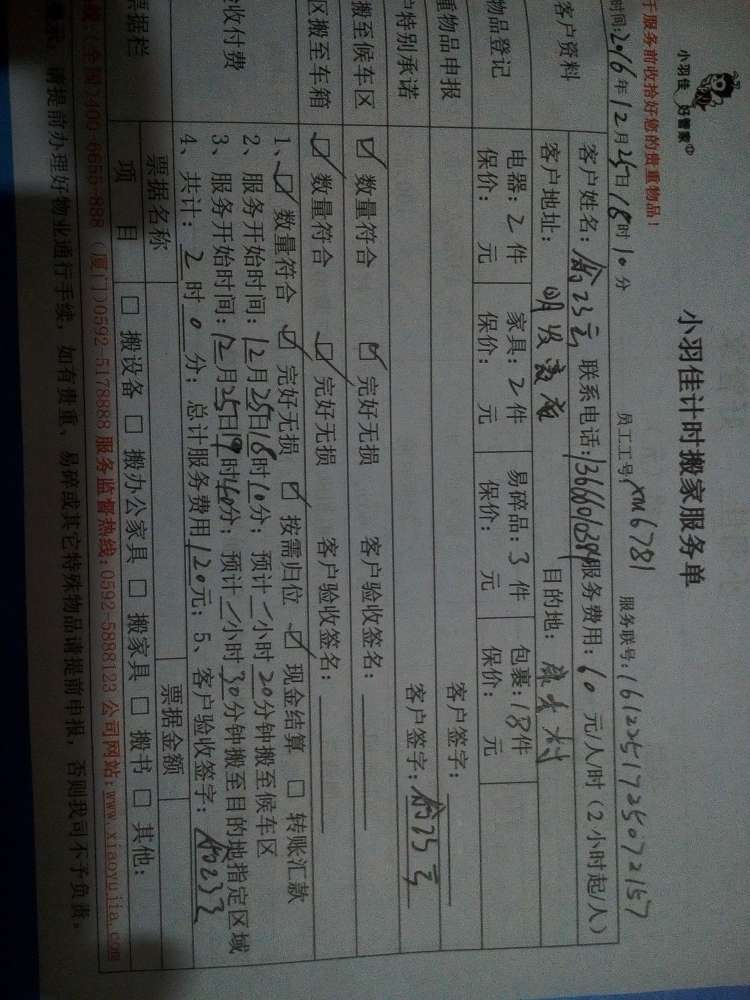 小羽佳 好管家
小羽佳计时搬家服务单
于服务前收拾好您的贵重物品!
员工工号:xm6781 服务联号:1612251725072157
时间:2016年12月25日18时10分
客户资料
客户姓名: 联系电话: 服务费用:60元/人/时(2小时起/人)
客户地址:明发 目的地:
物品登记
电器:2件 家具:2件 易碎品:3件 包裹:18件
保价: 元 保价: 元 保价: 元 保价: 元
重物品申报
客户签字:
户特别承诺
客户签字:
搬至候车区
☑ 数量符合 ☑ 完好无损 客户验收签名:
区搬至车箱
☑ 数量符合 ☑ 完好无损 客户验收签名:
收付费
1、☑ 数量符合 ☑ 完好无损 ☑ 按需归位 ☑ 现金结算 □ 转账汇款
2、服务开始时间:12月25日18时10分;预计1小时20分钟搬至候车区
3、服务开始时间:12月25日19时40分;预计1小时30分钟搬至目的地指定区域
4、共计:2时0分;总计服务费用120元;5、客户验收签字:
票据栏
票据名称 票据金额
项目 □ 搬设备 □ 搬办公家具 □ 搬家具 □ 搬书 □ 其他:
(全国)400-6655-888 (厦门)0592-5178888 服务监督热线:0592-5888123 公司网站:www.xiaoyujia.com
请提前办理好物业通行手续,如有贵重、易碎或其它特殊物品请提前申报,否则我司不予负责。